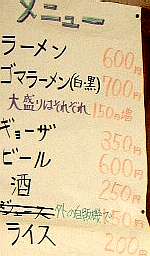 メニュー
ラーメン 600円
ゴマラーメン(白黒) 700円
大盛りはそれぞれ 150円増
ギョーザ 350円
ビール 600円
酒 250円
ジュース 外の自販機で 150円
ライス 200円